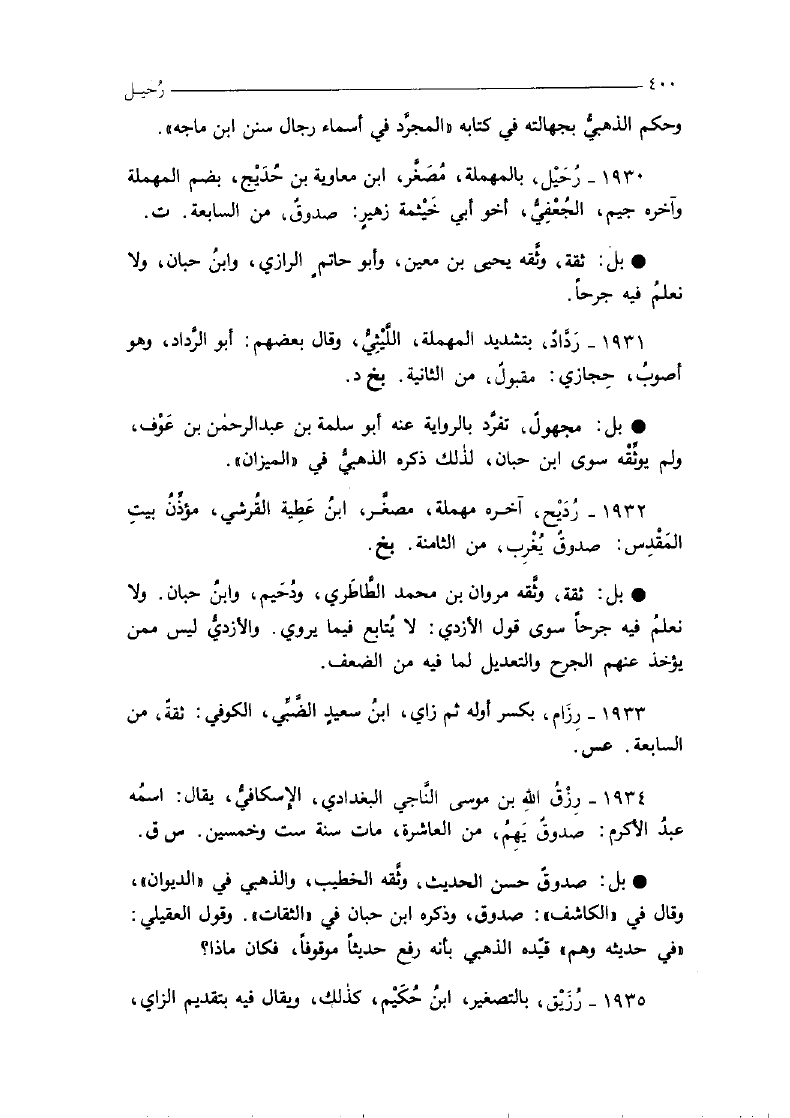 ٤٠٠ رُحَيـل
وحكم الذهبيُّ بجهالته في كتابه «المجرَّد في أسماء رجال سنن ابن ماجه».
١٩٣٠ ـ رُحَيْل، بالمهملة، مُصَغَّر، ابن معاوية بن حُدَيْج، بضم المهملة
وآخره جيم، الجُعْفِيُّ، أخو أبي خَيْثمة زهيرٍ: صدوقٌ، من السابعة. ت.
● بل: ثقة، وثَّقه يحيى بن معين، وأبو حاتمٍ الرازي، وابنُ حبان، ولا
نعلمُ فيه جرحاً.
١٩٣١ ـ رَدَّادٌ، بتشديد المهملة، اللَّيْثِيُّ، وقال بعضهم: أبو الرَّداد، وهو
أصوبُ، حِجازي: مقبولٌ، من الثانية. بخ د.
● بل: مجهولٌ، تفرَّد بالرواية عنه أبو سلمة بن عبدالرحمٰن بن عَوْف،
ولم يوثِّقْه سوى ابن حبان، لذٰلك ذكره الذهبيُّ في «الميزان».
١٩٣٢ ـ رُدَيْح، آخـره مهملة، مصغَّـر، ابنُ عَطِية القُرشي، مؤذِّنُ بيتِ
المَقْدِس: صدوقٌ يُغْرِب، من الثامنة. بخ.
● بل: ثقة، وثَّقه مروان بن محمد الطَّاطَري، ودُحَيم، وابنُ حبان. ولا
نعلمُ فيه جرحاً سوى قول الأزدي: لا يُتابع فيما يروي. والأزديُّ ليس ممن
يؤخذ عنهم الجرح والتعديل لما فيه من الضعف.
١٩٣٣ ـ رِزَام، بكسر أوله ثم زاي، ابنُ سعيدٍ الضَّبِّي، الكوفي: ثقةٌ، من
السابعة. عس.
١٩٣٤ ـ رِزْقُ اللهِ بن موسى النَّاجي البغدادي، الإسكافيُّ، يقال: اسمُه
عبدُ الأكرم: صدوقٌ يَهِمُ، من العاشرة، مات سنة ست وخمسين. س ق.
● بل: صدوقٌ حسن الحديث، وثَّقه الخطيب، والذهبي في «الديوان»،
وقال في «الكاشف»: صدوق، وذكره ابن حبان في «الثقات». وقول العقيلي:
«في حديثه وهم» قيّده الذهبي بأنه رفع حديثاً موقوفاً، فكان ماذا؟
١٩٣٥ ـ رُزَيْق، بالتصغير، ابنُ حُكَيْم، كذٰلك، ويقال فيه بتقديم الزاي،